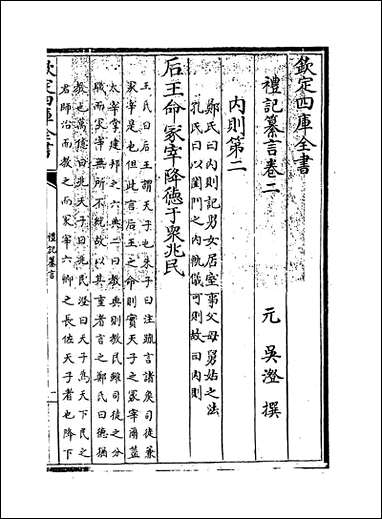 欽定四庫全書
禮記纂言卷二
元 吳澄 撰
內則第二
鄭氏曰內則記男女居室事父母舅姑之法
孔氏曰以閨門之內軌儀可則故曰內則
后王命冢宰降德于衆兆民
王氏曰后王謂天子也朱子曰注疏言諸矦司徒兼
冢宰是也但此言后王之命則實天子之冢宰爾蓋
太宰掌建邦之六典二曰教典則教民雖司徒之分
職而冢宰無所不統故以其重者言之鄭氏曰德猶
教也萬億曰兆天子曰兆民澄曰天子爲天下民之
君師治而教之而冢宰六卿之長佐天子者也降下
欽定四庫全書
禮記纂言